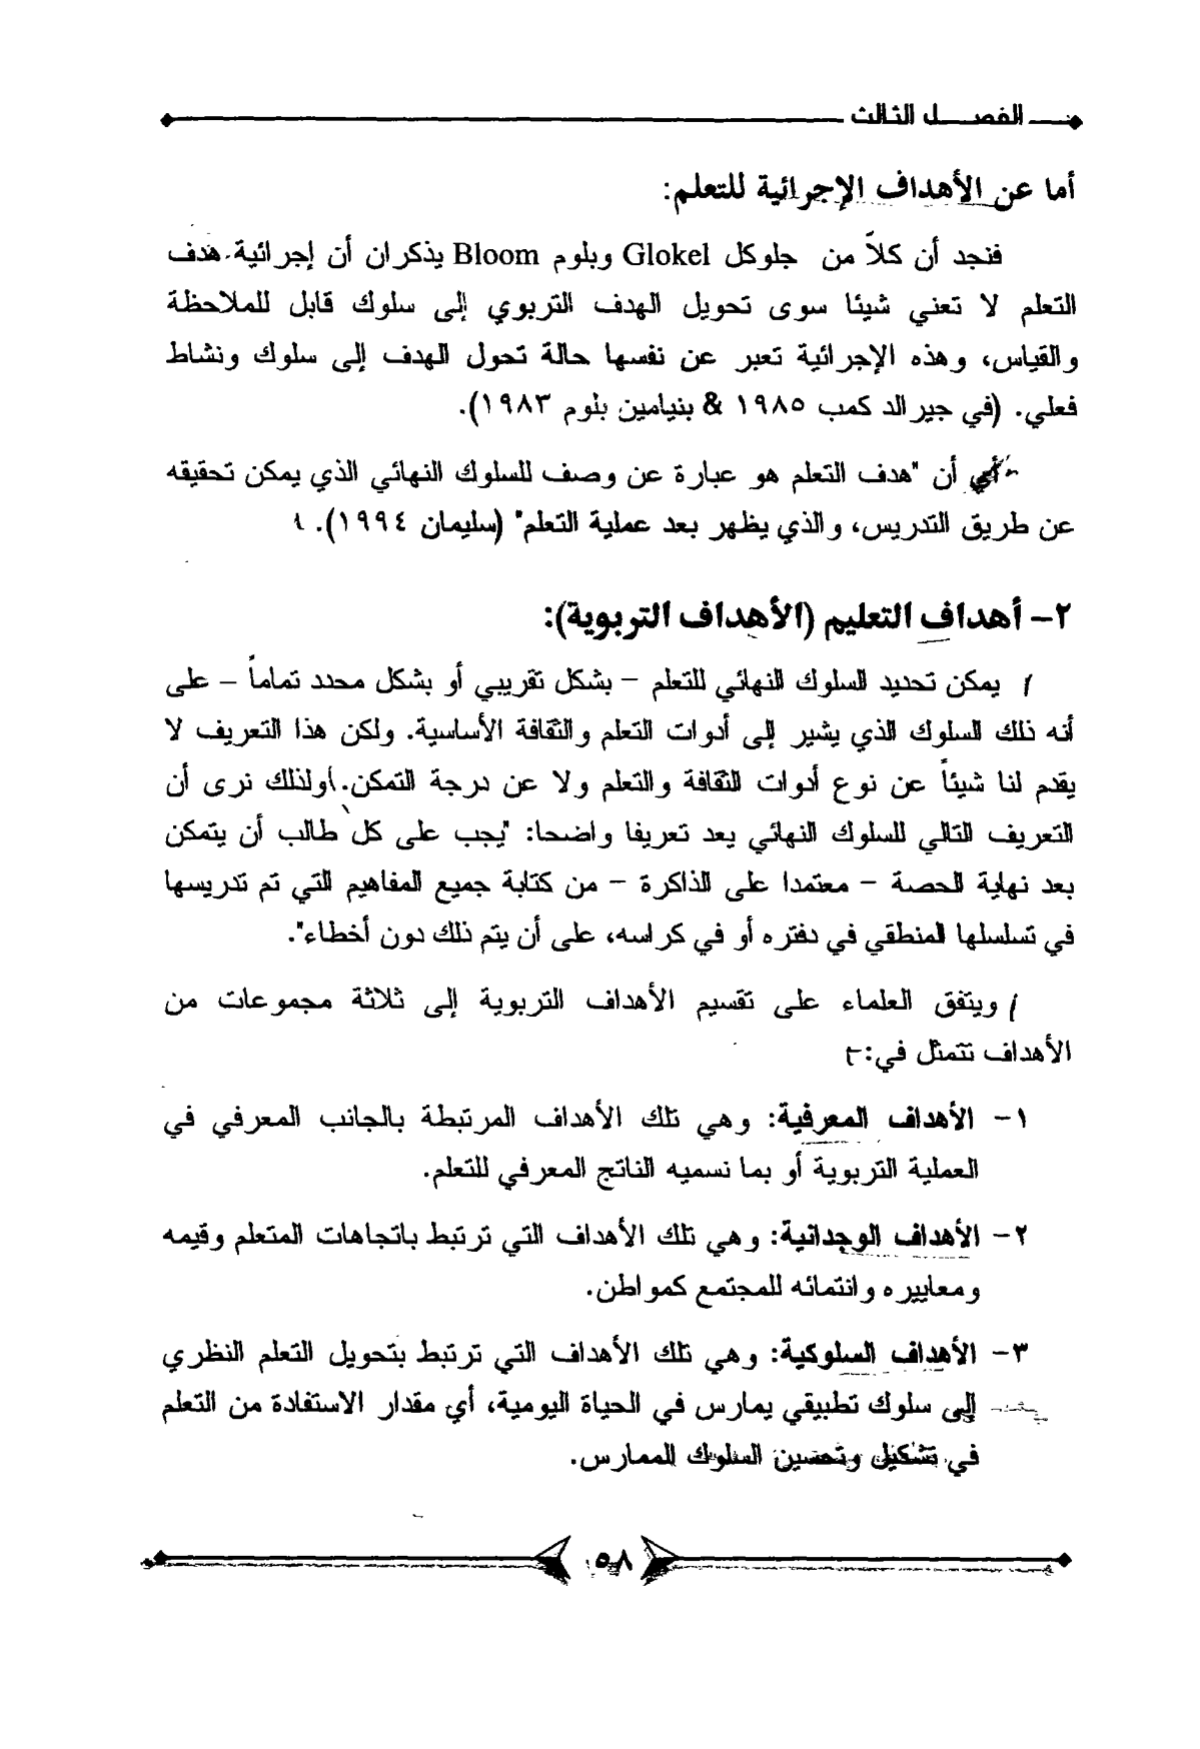 الفصـــل الثالث
أما عن الأهداف الإجرائية للتعلم:
فنجد أن كلاً من جلوكل Glokel وبلوم Bloom يذكران أن إجرائية هدف
التعلم لا تعني شيئا سوى تحويل الهدف التربوي إلى سلوك قابل للملاحظة
والقياس، وهذه الإجرائية تعبر عن نفسها حالة تحول الهدف إلى سلوك ونشاط
فعلي. (في جيرالد كمب ١٩٨٥ & بنيامين بلوم ١٩٨٣).
أي أن "هدف التعلم هو عبارة عن وصف للسلوك النهائي الذي يمكن تحقيقه
عن طريق التدريس، والذي يظهر بعد عملية التعلم" (سليمان ١٩٩٤).
٢- أهداف التعليم (الأهداف التربوية):
يمكن تحديد السلوك النهائي للتعلم – بشكل تقريبي أو بشكل محدد تماماً – على
أنه ذلك السلوك الذي يشير إلى أدوات التعلم والثقافة الأساسية. ولكن هذا التعريف لا
يقدم لنا شيئاً عن نوع أدوات الثقافة والتعلم ولا عن درجة التمكن. ولذلك نرى أن
التعريف التالي للسلوك النهائي يعد تعريفا واضحا: "يجب على كل طالب أن يتمكن
بعد نهاية الحصة – معتمدا على الذاكرة – من كتابة جميع المفاهيم التي تم تدريسها
في تسلسلها المنطقي في دفتره أو في كراسه، على أن يتم ذلك دون أخطاء".
ويتفق العلماء على تقسيم الأهداف التربوية إلى ثلاثة مجموعات من
الأهداف تتمثل في:-
١- الأهداف المعرفية: وهي تلك الأهداف المرتبطة بالجانب المعرفي في
العملية التربوية أو بما نسميه الناتج المعرفي للتعلم.
٢- الأهداف الوجدانية: وهي تلك الأهداف التي ترتبط باتجاهات المتعلم وقيمه
ومعاييره وانتمائه للمجتمع كمواطن.
٣- الأهداف السلوكية: وهي تلك الأهداف التي ترتبط بتحويل التعلم النظري
إلى سلوك تطبيقي يمارس في الحياة اليومية، أي مقدار الاستفادة من التعلم
في تشكيل وتحسين السلوك الممارس.
٥٨